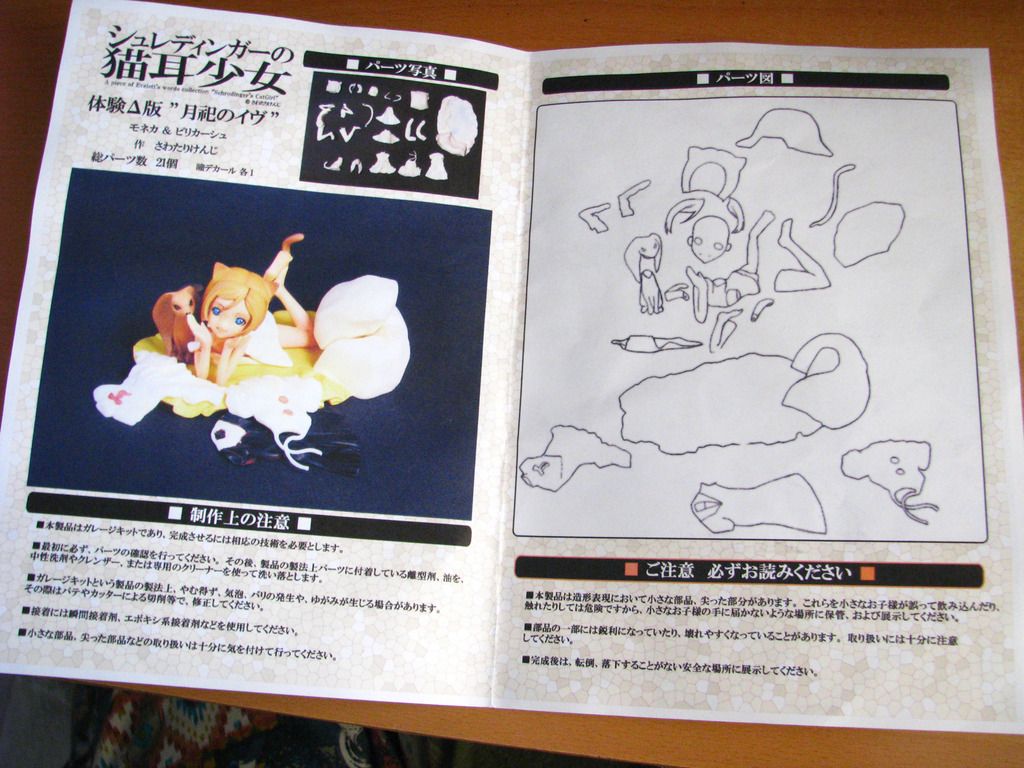 シュレディンガーの
猫耳少女
A piece of Evalett's words collection "Schrodinger's CatGirl"
©さわたりけんじ
体験Δ版 ”月祀のイヴ”
モネカ & ピリカーシュ
作 さわたりけんじ
総パーツ数 21個 瞳デカール 各1
■ パーツ写真 ■
■ 制作上の注意 ■
■本製品はガレージキットであり、完成させるには相応の技術を必要とします。
■最初に必ず、パーツの確認を行ってください。その後、製品の製法上パーツに付着している離型剤、油を、
中性洗剤やクレンザー、または専用のクリーナーを使って洗い落とします。
■ガレージキットという製品の製法上、やむ得ず、気泡、バリの発生や、ゆがみが生じる場合があります。
その際はパテやカッターによる切削等で、修正してください。
■接着には瞬間接着剤、エポキシ系接着剤などを使用してください。
■小さな部品、尖った部品などの取り扱いは十分に気を付けて行ってください。
■ パーツ図 ■
■ ご注意 必ずお読みください ■
■本製品は造形表現において小さな部品、尖った部分があります。これらを小さなお子様が誤って飲み込んだり、
触れたりしては危険ですから、小さなお子様の手に届かないような場所に保管、および展示してください。
■部品の一部には鋭利になっていたり、壊れやすくなっていることがあります。取り扱いには十分に注意
してください。
■完成後は、転倒、落下することがない安全な場所に展示してください。